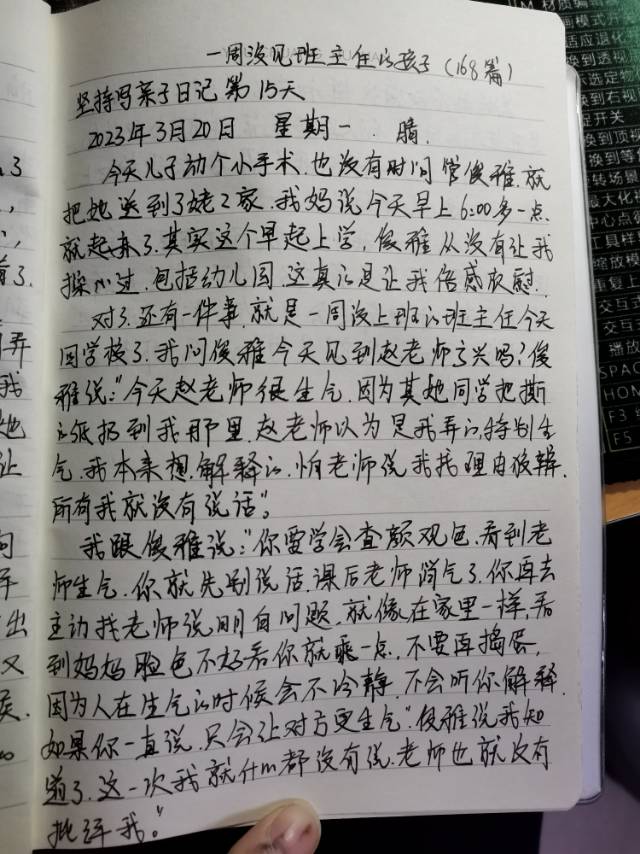 一周没见班主任的孩子（168篇）
坚持写亲子日记第15天
2023年3月20日 星期一 . 晴.
今天儿子动个小手术.也没有时间管俊雅.就
把她送到了姥々家.我妈说今天早上6:00多一点
就起来了.其实这个早起上学,俊雅从没有让我
操心过.包括幼儿园.这真的是让我倍感欣慰.
对了.还有一件事.就是一周没上班的班主任今天
回学校了.我问俊雅今天见到赵老师高兴吗?俊
雅说:"今天赵老师很生气.因为其她同学把撕
的纸扔到我那里.赵老师以为是我弄的.特别生
气.我本来想解释的.怕老师说我找理由狡辩.
所有我就没有说话"。
我跟俊雅说:"你要学会查颜观色.看到老
师生气.你就先别说话.课后老师消气了.你再去
主动找老师说明白问题.就像在家里一样,看
到妈妈脸色不好看你就乖一点.不要再捣蛋,
因为人在生气的时候会不冷静.不会听你解释.
如果你一直说.只会让对方更生气"俊雅说我知
道了.这一次我就什m都没有说.老师也就没有
批评我。"
M 材质编
画模式开
应退化
选定物
换到右视
换到透视
换到顶
换到等
转场景
最大化视
中心点
工具样
缩放模
重复上
交互
交互
播放
SPAC
HOM
F3
F5